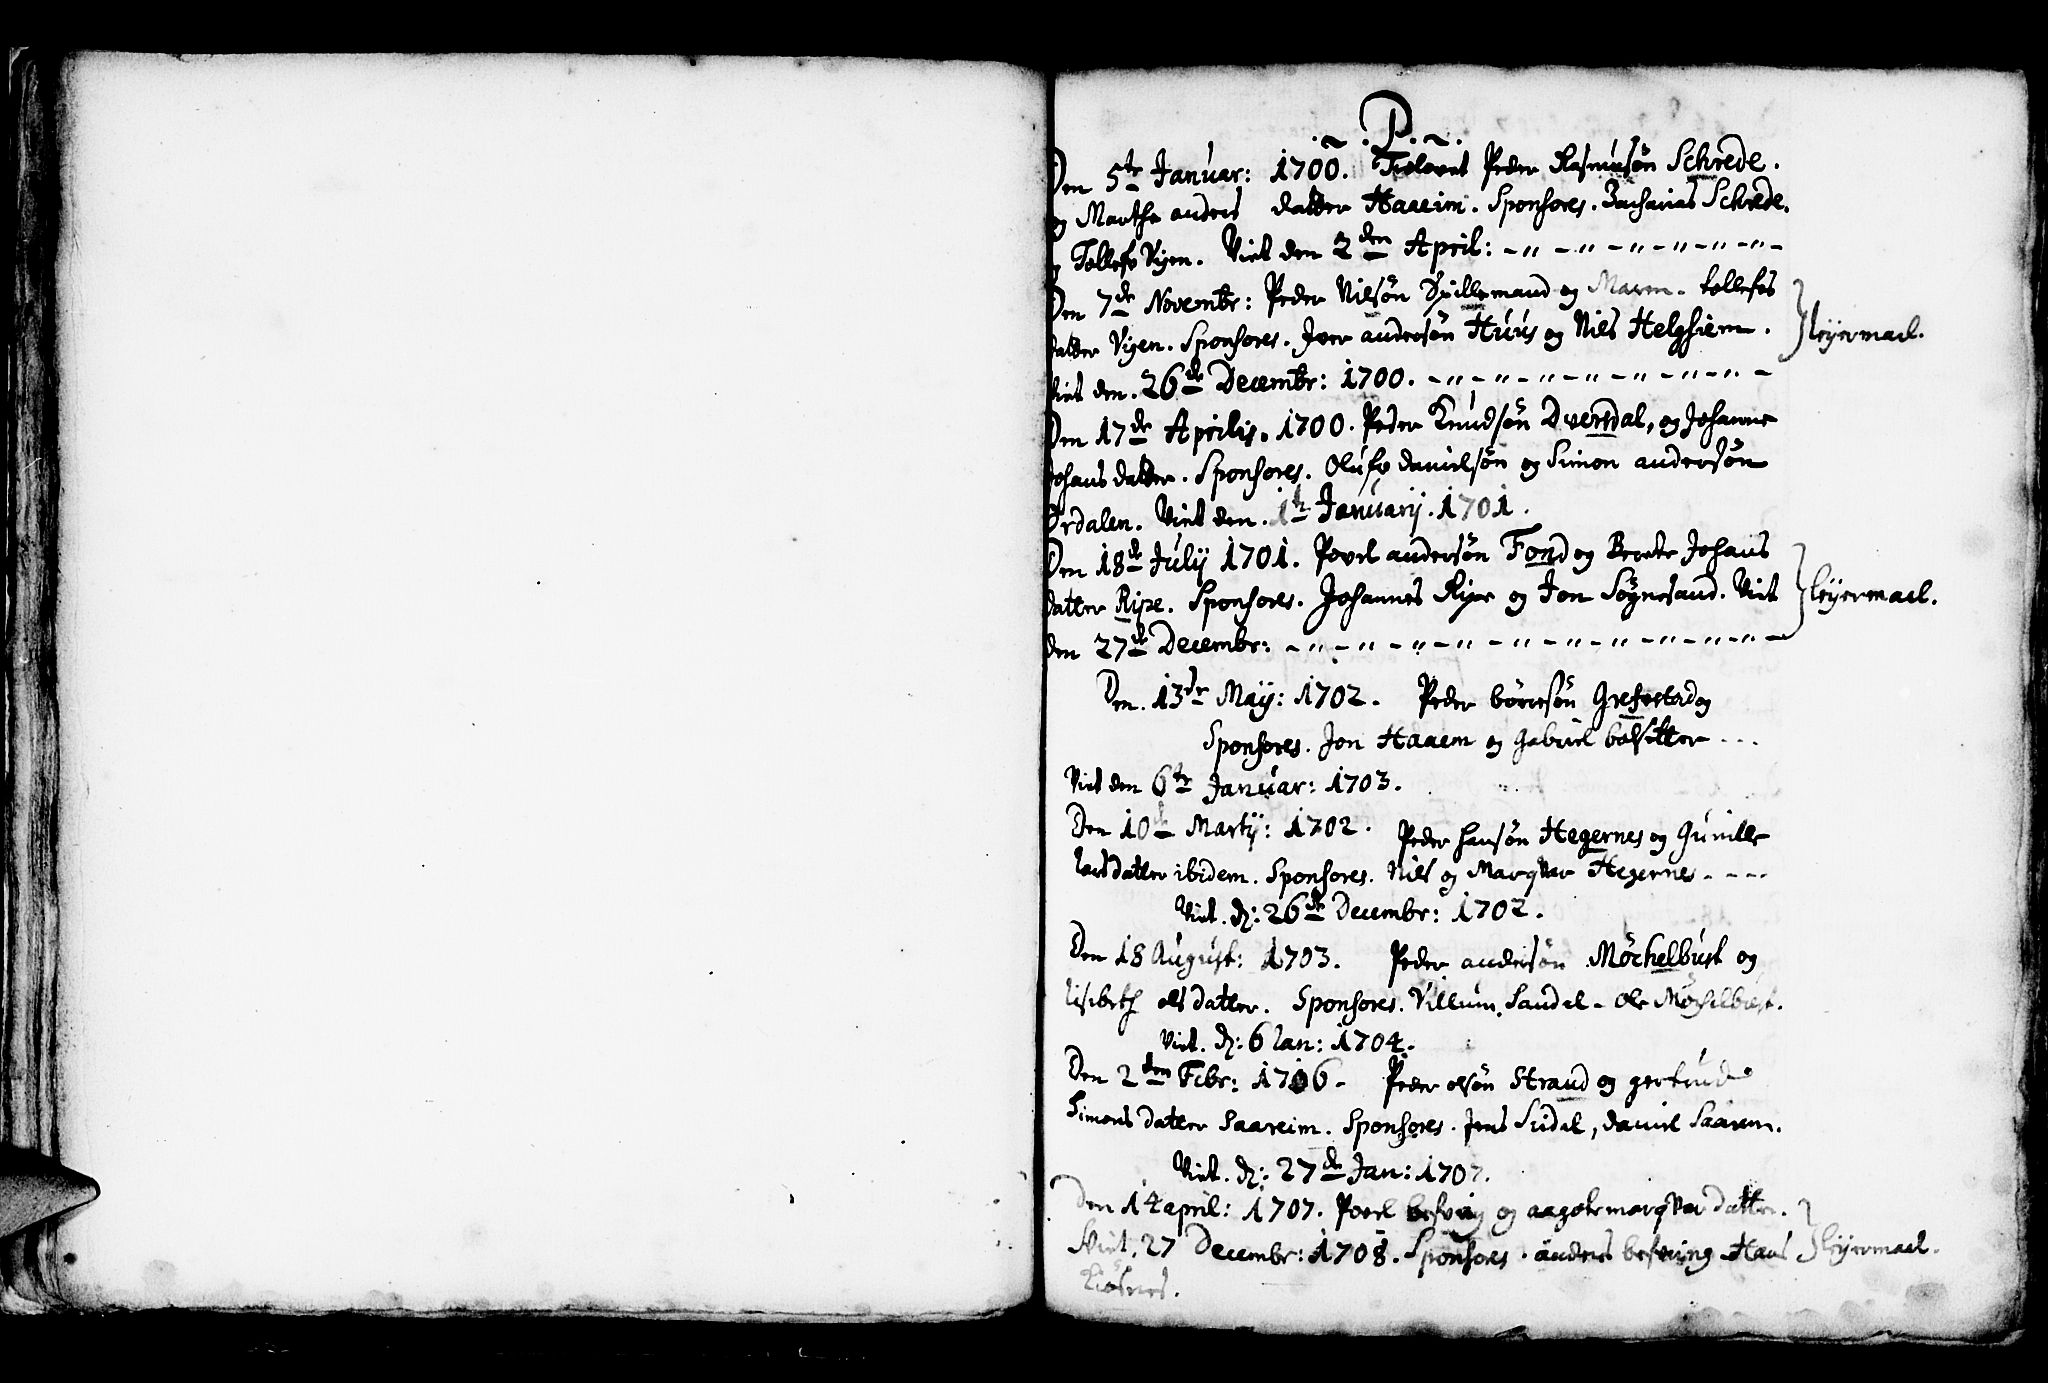 .~. P. ~.
Den 5te Januar: 1700. Trolovet Peder Rasmusøn Schrede.
og Marthe anders datter Haaeim. Sponsores. Zacharias Schrede.
og Tollefv Vijen. Viet den 2den April: -"-"-"-"-"-"-
Den 7de Novembr: Peder Nilsøn Spillemand og Maren. tollefs
datter Vigen. Sponsores. Iver andersøn Huus og Nils Helghiem. } leijermael.
Viet den. 26de Decembr: 1700. -"-"-"-"-"-"-"-
Den 17de Aprilis. 1700. Peder Knudsøn Dversdal, og Johanne
Johans datter. Sponsores. Olufv danielsøn og Simon andersøn
Ørdalen. Viet den. 1te Januarij. 1701.
Den 18de Julij 1701. Povel andersøn Fond og Berete Johans
datter Ripe. Sponsores. Johannes Ripe og Jon Søgnesand. Viet } leijermael.
den 27de Decembr: -"-"-"-"-"-"-"-"-"-
Den. 13de Maij: 1702. Peder børresøn Grefestad og
Sponsores. Jon Haaem og Gabriel bolsetter ---
Viet den 6te Januar: 1703.
Den 10de Martij: 1702. Peder Hansøn Hegernes og Gunille
lars datter ibidem. Sponsores. Nils og Marqvar Hegernes ----
Viet. d: 26de Decembr: 1702.
Den 18 August: 1703. Peder andersøn Møchelbust og
lisebeth ols datter. Sponsores. Villum Sandal - Ole Møchelbust.
Viet. d: 6 Jan: 1704.
Den 2den Febr: 1706. Peder olsøn Strand og gertrud
Simons datter Saareim. Sponsores. Jens Sidal, daniel Saarem.
Viet. d: 27de Jan: 1707.
Den 14 april: 1707. Povel befring og aagote marqvar datter.
Viet. 27 Decembr: 1708. Sponsores. anders befring Hans } leijermael.
Kiøsnes.